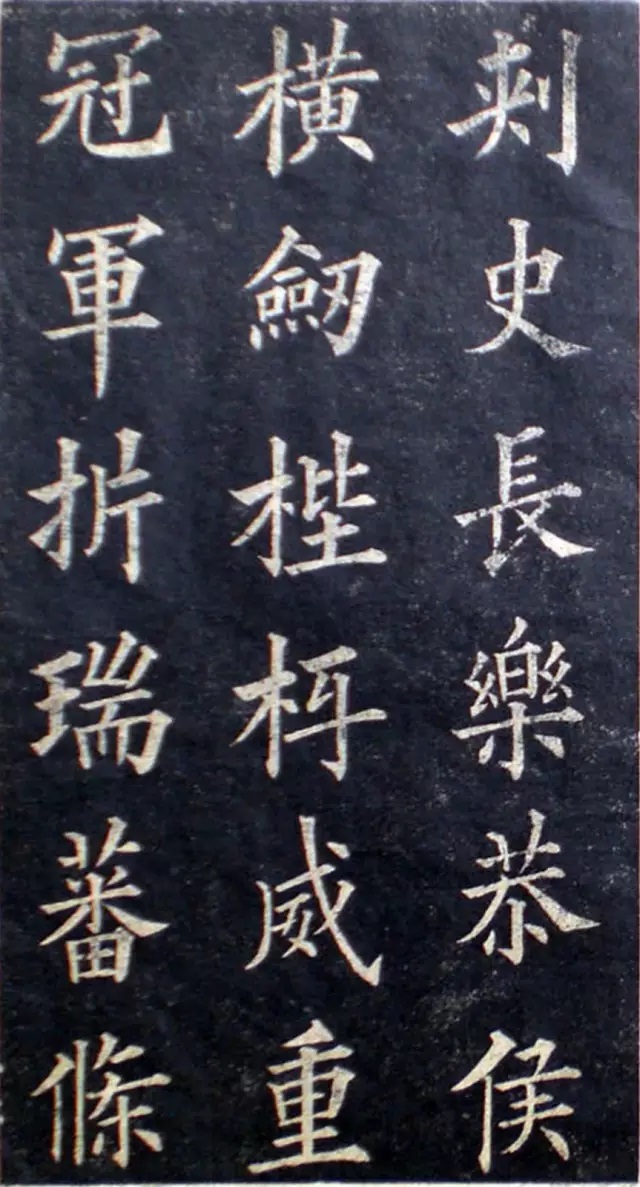 刺史長樂恭侯
横劒梐枑威重
冠軍折瑞蕃條